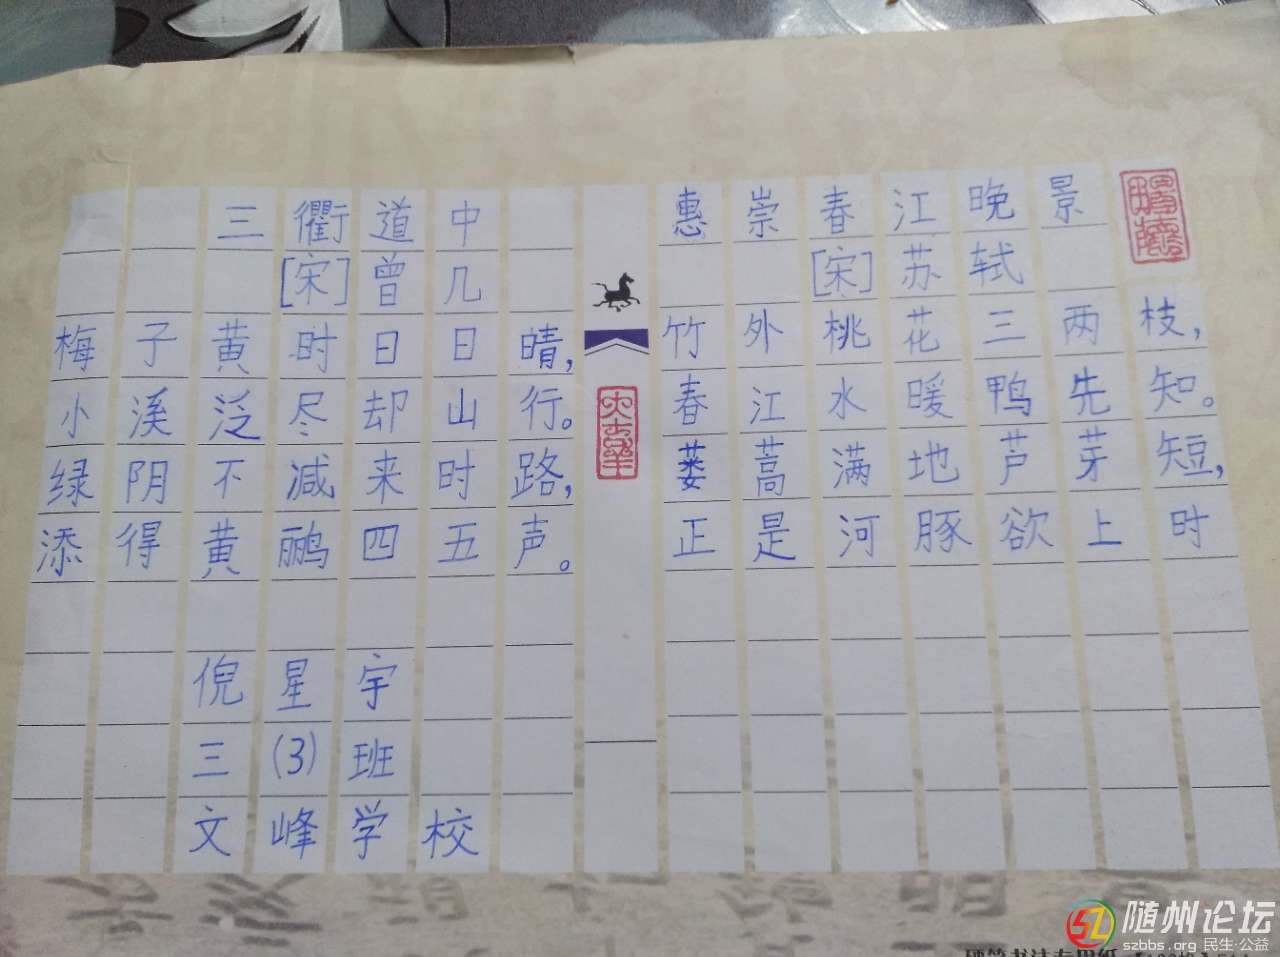 三衢道中
[宋]曾几
梅子黄时日日晴,
小溪泛尽却山行。
绿阴不减来时路,
添得黄鹂四五声。
倪星宇
三(3)班
文峰学校
惠崇春江晚景
[宋]苏轼
竹外桃花三两枝,
春江水暖鸭先知。
蒌蒿满地芦芽短,
正是河豚欲上时
随州论坛
szbbs.org 民生·公益